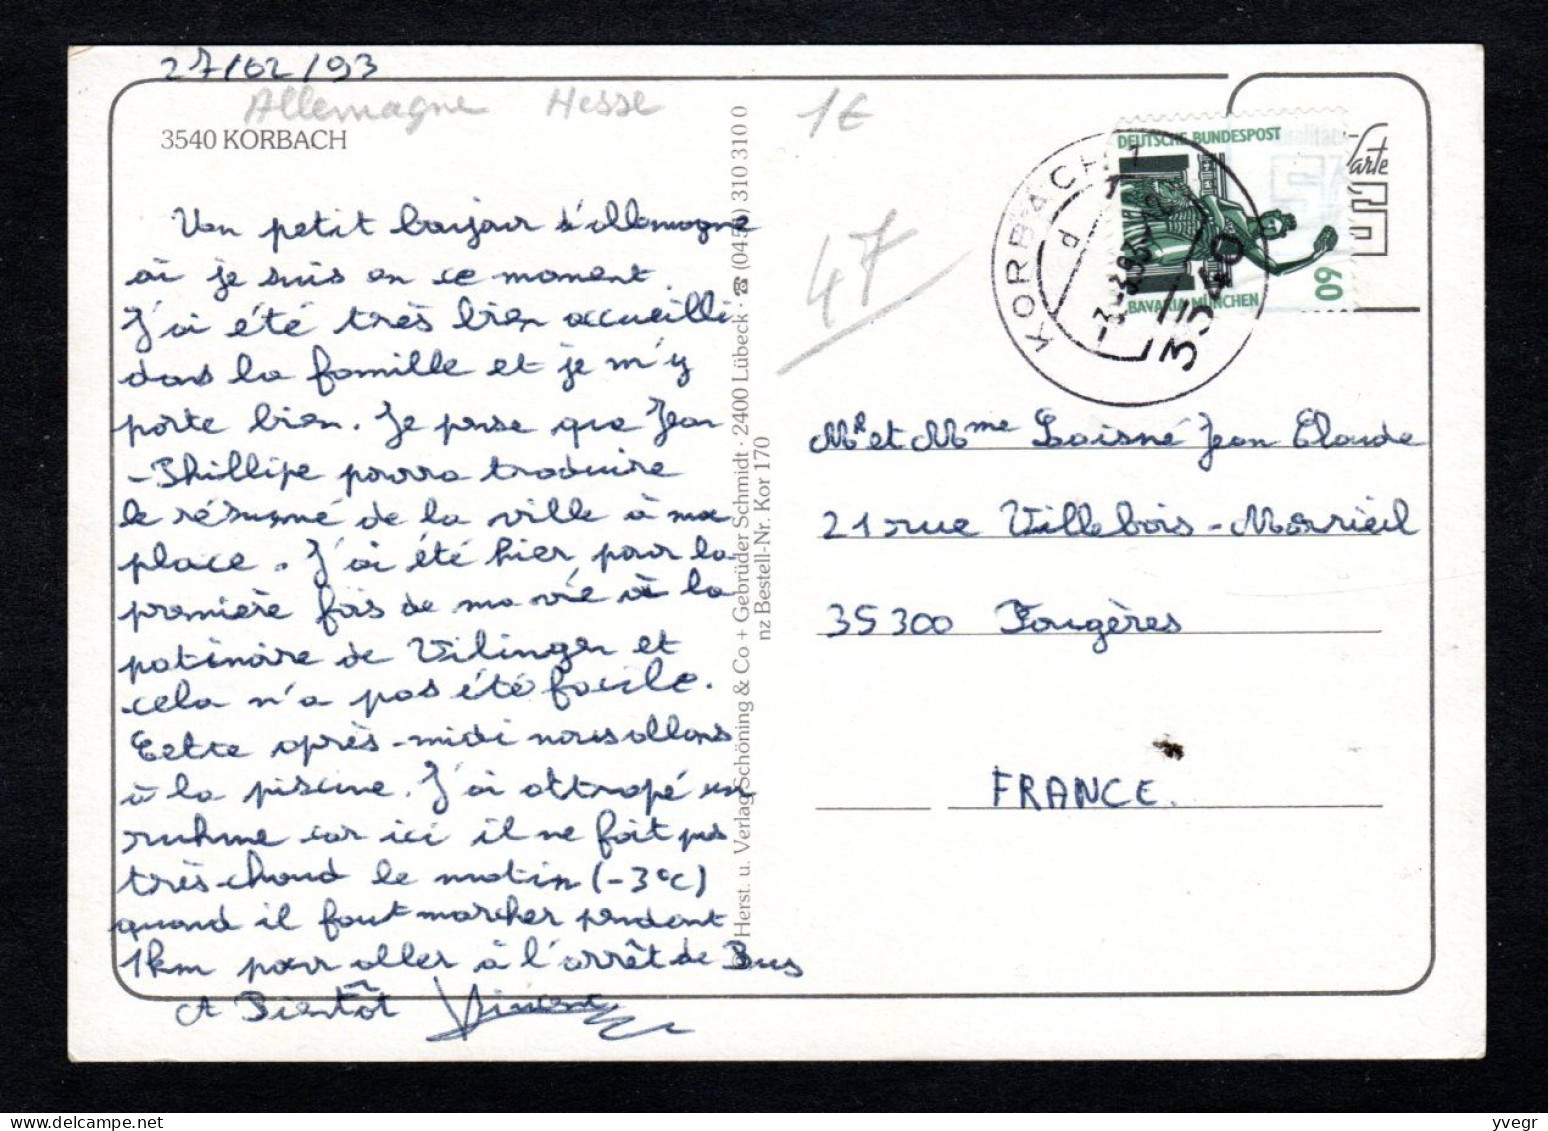 27/02/93
Allemagne Hesse
3540 KORBACH
Un petit bonjour d'allemagne
où je suis en ce moment.
J'ai été très bien accueilli
dans la famille et je m'y
porte bien. Je pense que Jean
-Phillipe pourra traduire
le résumé de la ville à ma
place. J'ai été hier, pour la
première fois de ma vie à la
patinoire de Vilingen et
cela n'a pas été facile.
Cette après-midi nous allons
à la piscine. J'ai attrapé un
ruhme car ici il ne fait pas
très chaud le matin (-3°c)
quand il faut marcher pendant
1km pour aller à l'arrêt de Bus
A Bientôt Vincent
Herst. u. Verlag Schöning & Co + Gebrüder Schmidt · 2400 Lübeck · ☎ (0451) 310 310 0
nz Bestell-Nr. Kor 170
1€
47
KORBACH 1
d
3540
DEUTSCHE BUNDESPOST
BAVARIA MÜNCHEN
60
Karte
Mr et Mme Loisné Jean Claude
21 rue Villebois-Mareuil
35300 Fougères
FRANCE.
yvegr